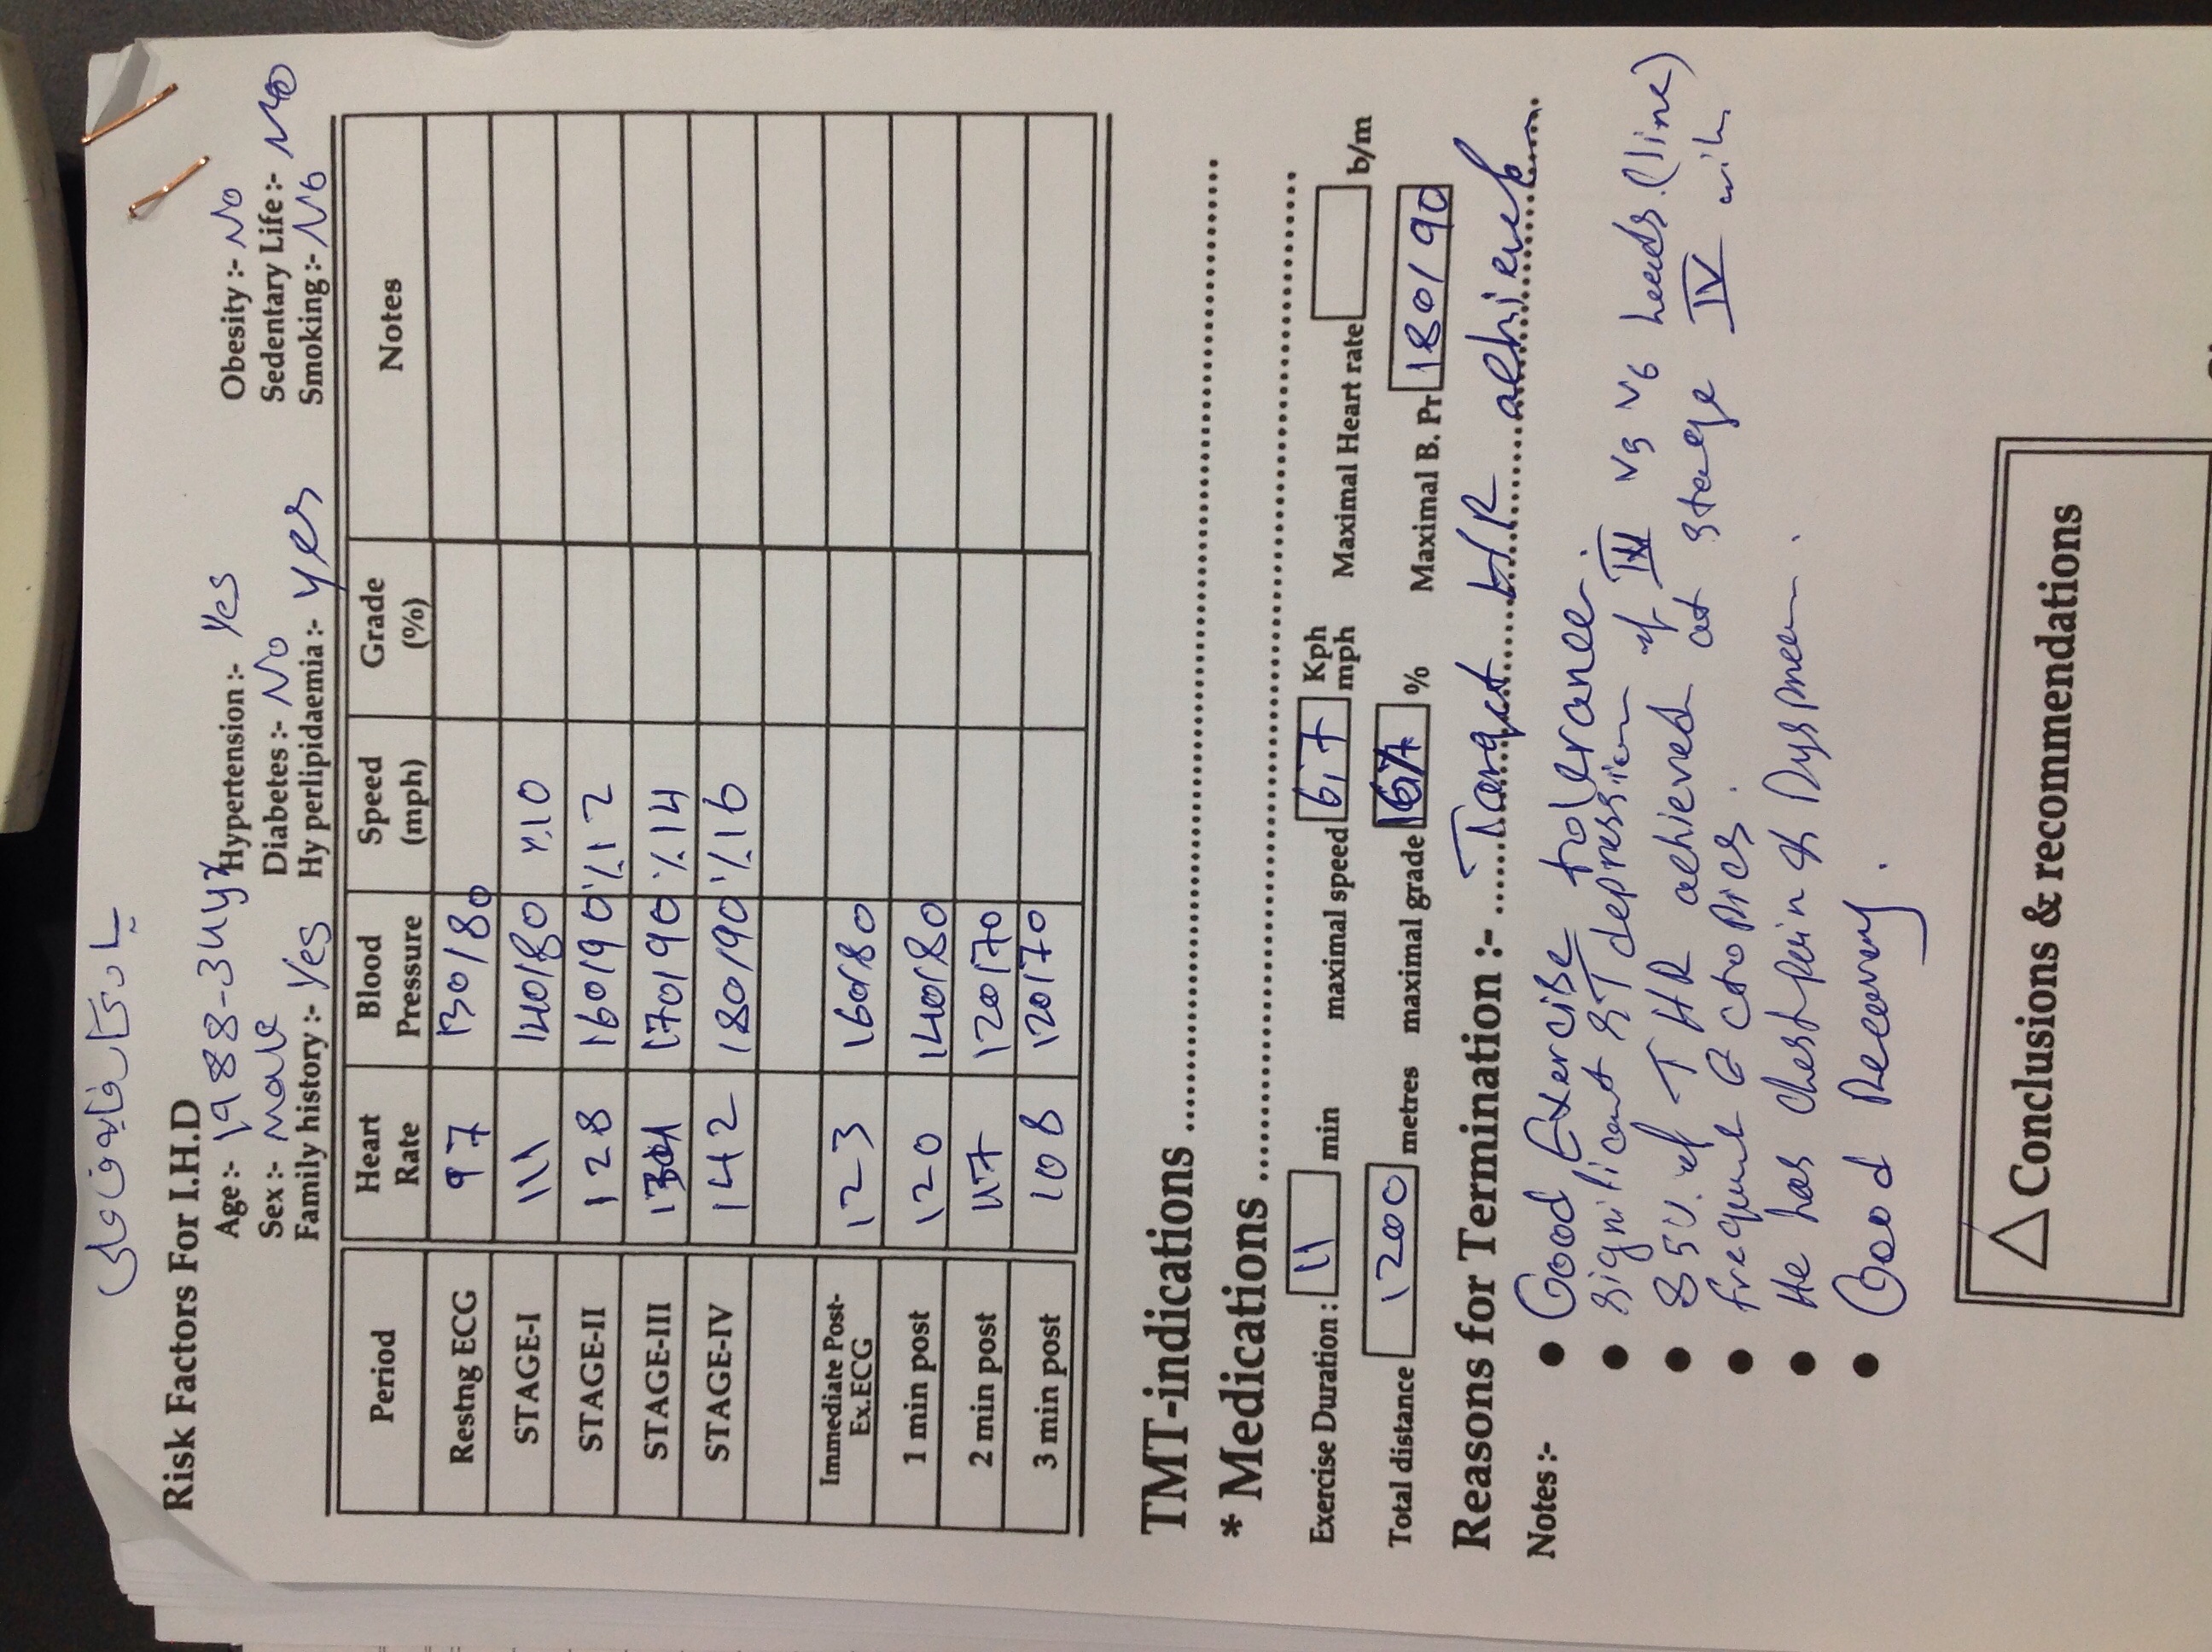 Risk Factors For I.H.D
Age :- 1988-34yr Hypertension :- Yes Obesity :- No
Sex :- male Diabetes :- No Sedentary Life :- No
Family history :- Yes Hyperlipidaemia :- yes Smoking :- No
Period Heart Rate Blood Pressure Speed (mph) Grade (%) Notes
Restng ECG 97 130/80
STAGE-I 111 140/80 %10
STAGE-II 128 160/90 %12
STAGE-III 170/90 %14
STAGE-IV 142 180/90 %16
Immediate Post-Ex.ECG 123 160/80
1 min post 120 140/80
2 min post 117 120/70
3 min post 108 120/70
TMT-indications
* Medications
Exercise Duration : 11 min maximal speed 6,7 Kph mph Maximal Heart rate b/m
Total distance 1200 metres maximal grade % Maximal B. Pr 180/90
Reasons for Termination :- Target HR achieved
Notes :-
• Good Exercise tolerance.
• significant ST depression of V5 V6 leads. (line)
• 85% of THR achieved at stage IV with
• frequent ectopics.
• He has chest pain & Dyspnea.
• Good Recovery.
Conclusions & recommendations